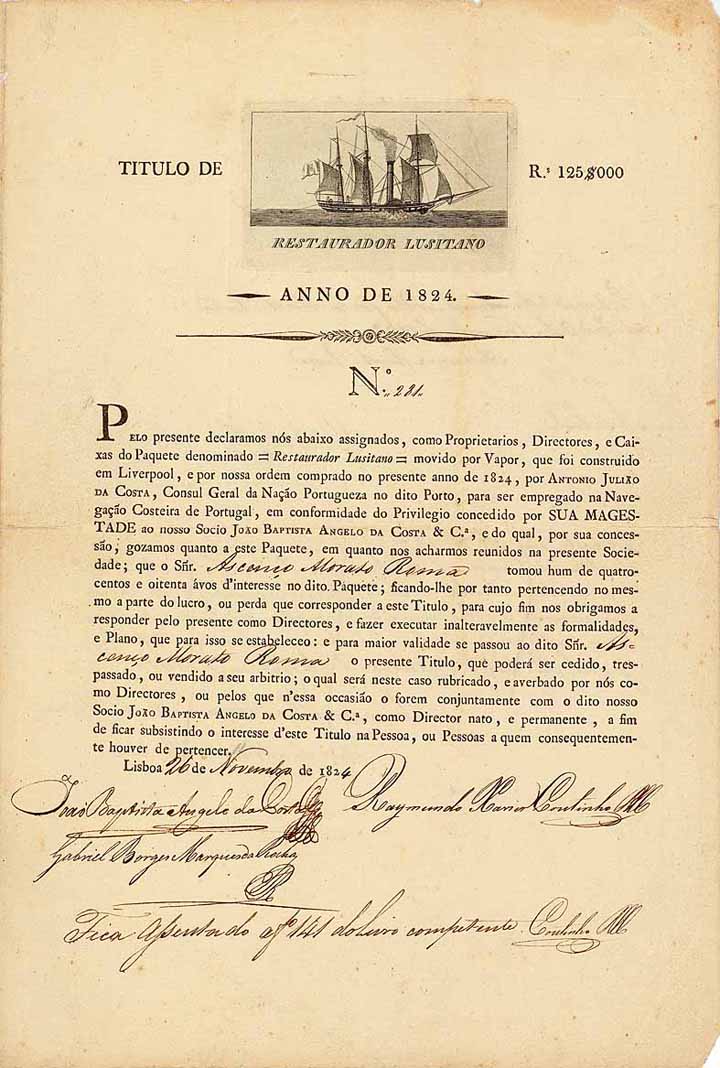 TITULO DE
R.ˢ 125$000
RESTAURADOR LUSITANO
ANNO DE 1824.
N.º 281
PELO presente declaramos nós abaixo assignados, como Proprietarios, Directores, e Cai-
xas do Paquete denominado = Restaurador Lusitano = movido por Vapor, que foi construido
em Liverpool, e por nossa ordem comprado no presente anno de 1824, por ANTONIO JULIÃO
DA COSTA, Consul Geral da Nação Portugueza no dito Porto, para ser empregado na Nave-
gação Costeira de Portugal, em conformidade do Privilegio concedido por SUA MAGES-
TADE ao nosso Socio JOÃO BAPTISTA ANGELO DA COSTA & C.ª, e do qual, por sua conces-
são, gozamos quanto a este Paquete, em quanto nos acharmos reunidos na presente Socie-
dade; que o Sñr. Ascenço Morato Roma tomou hum de quatro-
centos e oitenta ávos d'interesse no dito Paquete; ficando-lhe por tanto pertencendo no mes-
mo a parte do lucro, ou perda que corresponder a este Titulo, para cujo fim nos obrigamos a
responder pelo presente como Directores, e fazer executar inalteravelmente as formalidades,
e Plano, que para isso se estabeleceo: e para maior validade se passou ao dito Sñr. As-
cenço Morato Roma o presente Titulo, que poderá ser cedido, tres-
passado, ou vendido a seu arbitrio; o qual será neste caso rubricado, e averbado por nós co-
mo Directores, ou pelos que n'essa occasião o forem conjuntamente com o dito nosso
Socio JOÃO BAPTISTA ANGELO DA COSTA & C.ª, como Director nato, e permanente, a fim
de ficar subsistindo o interesse d'este Titulo na Pessoa, ou Pessoas a quem consequentemen-
te houver de pertencer.
Lisboa 26 de Novembro de 1824
João Baptista Angelo da Costa & Cª
Raymundo Xavier Coutinho
Gabriel Borges Marques da Rocha
Fica assentado a fº 141 do Livro competente. Coutinho